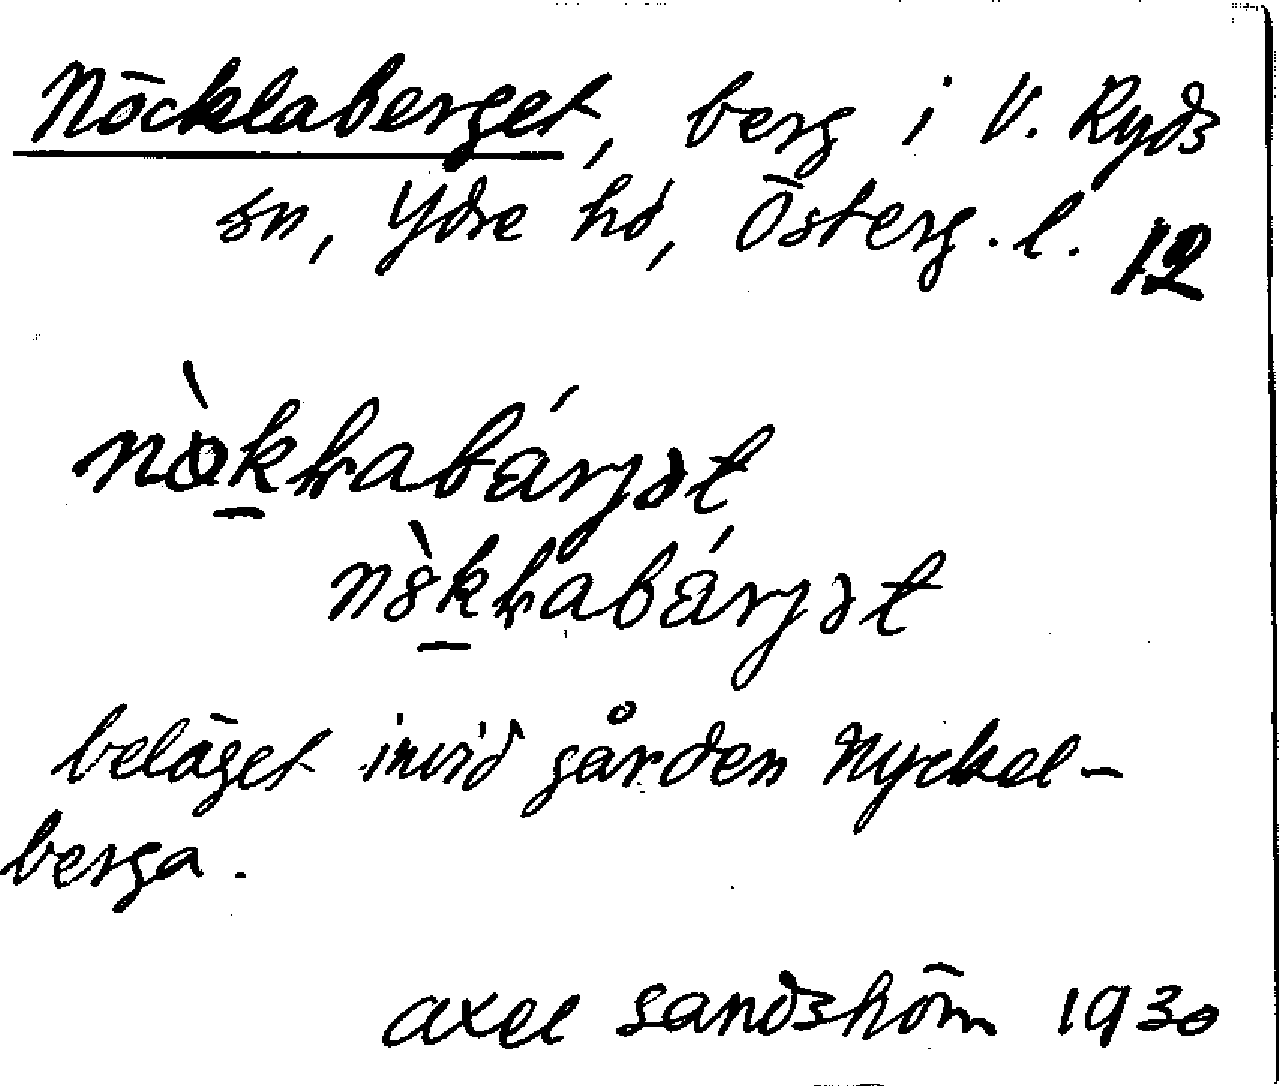 Nöcklaberget, berg i V. Ryds
sn, Ydre hd, Österg. l. 12
beläget invid gården Nyckel-
berga.
Axel Sandström 1930